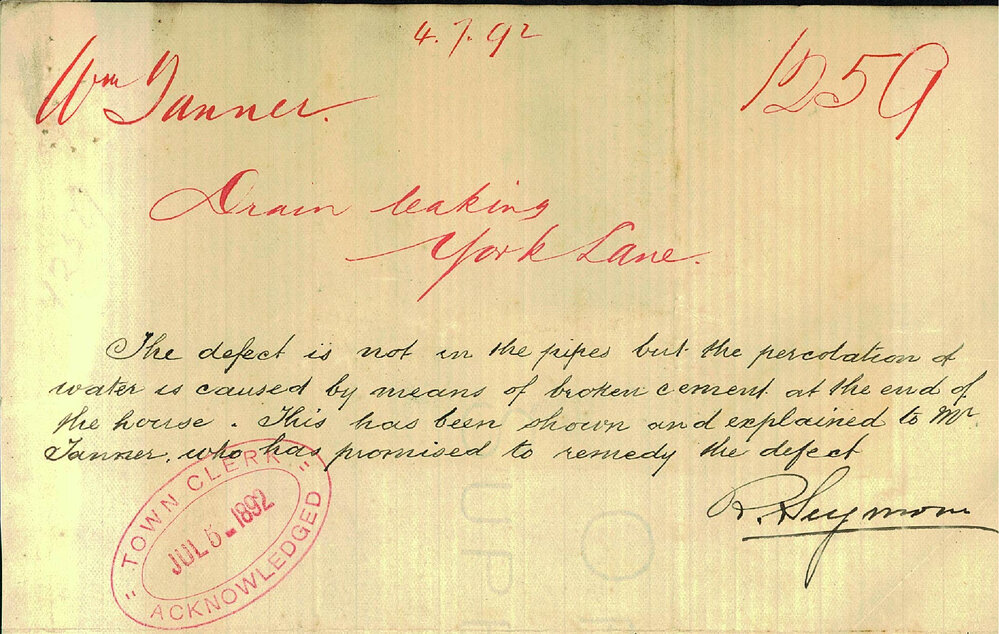 4.7.92
Wm Tanner.
1259
Drain leaking
York Lane.
The defect is not in the pipes but the percolation of
water is caused by means of broken cement at the end of
the house. This has been shown and explained to Mr
Tanner, who has promised to remedy the defect
R. Seymour
"TOWN CLERK"
JUL 5-1892
ACKNOWLEDGED